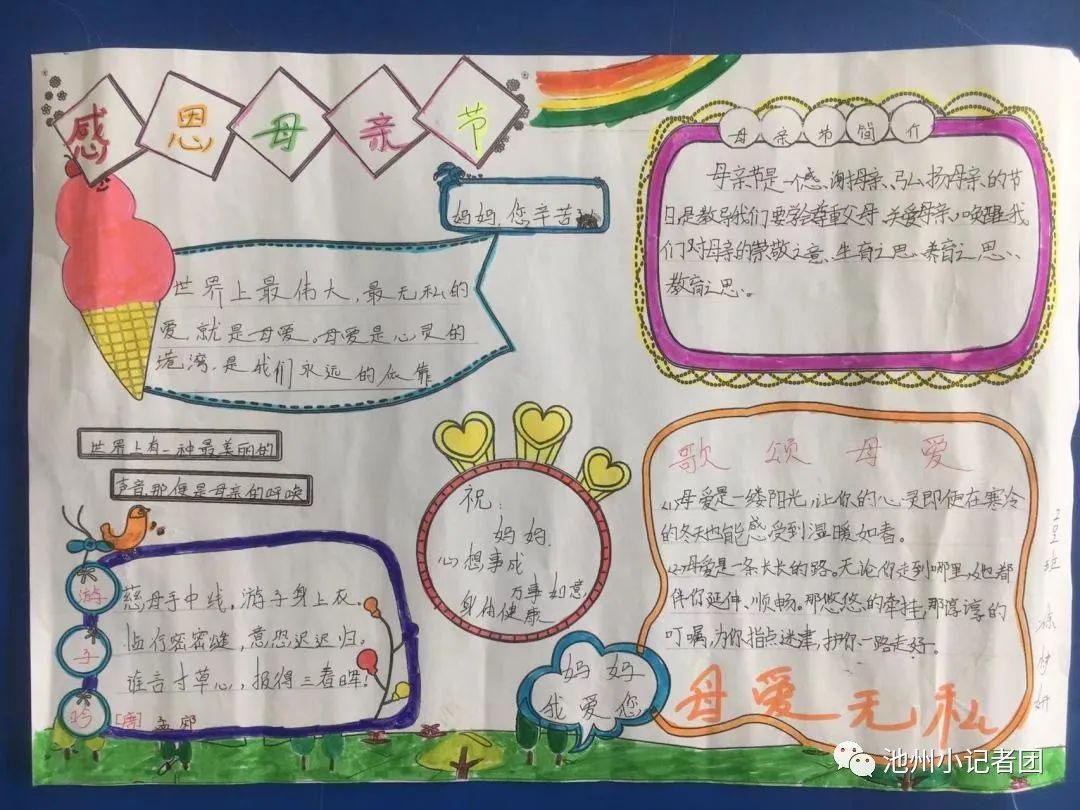 感恩母亲节
妈妈,您辛苦
世界上最伟大,最无私的
爱,就是母爱。母爱是心灵的
港湾,是我们永远的依靠
母亲节简介
母亲节是一个感谢母亲、弘扬母亲的节
日,是教导我们要学会尊重父母、关爱母亲、唤醒我
们对母亲的崇敬之意、生育之恩、养育之恩、
教育之恩。
世界上有一种最美丽的
声音,那便是母亲的呼唤
祝:
妈妈,
心想事成
万事如意,
身体健康
游子吟
慈母手中线,游子身上衣。
临行密密缝,意恐迟迟归。
谁言寸草心,报得三春晖。
[唐] 孟郊
妈妈
我爱您
歌颂母爱
(1)母爱是一缕阳光,让你的心灵即使在寒冷
的冬天也能感受到温暖如春。
(2)母爱是一条长长的路。无论你走到哪里,她都
伴你延伸、顺畅。那悠悠的牵挂,那谆谆的
叮嘱,为你指点迷津,护你一路走好。
母爱无私
池州小记者团